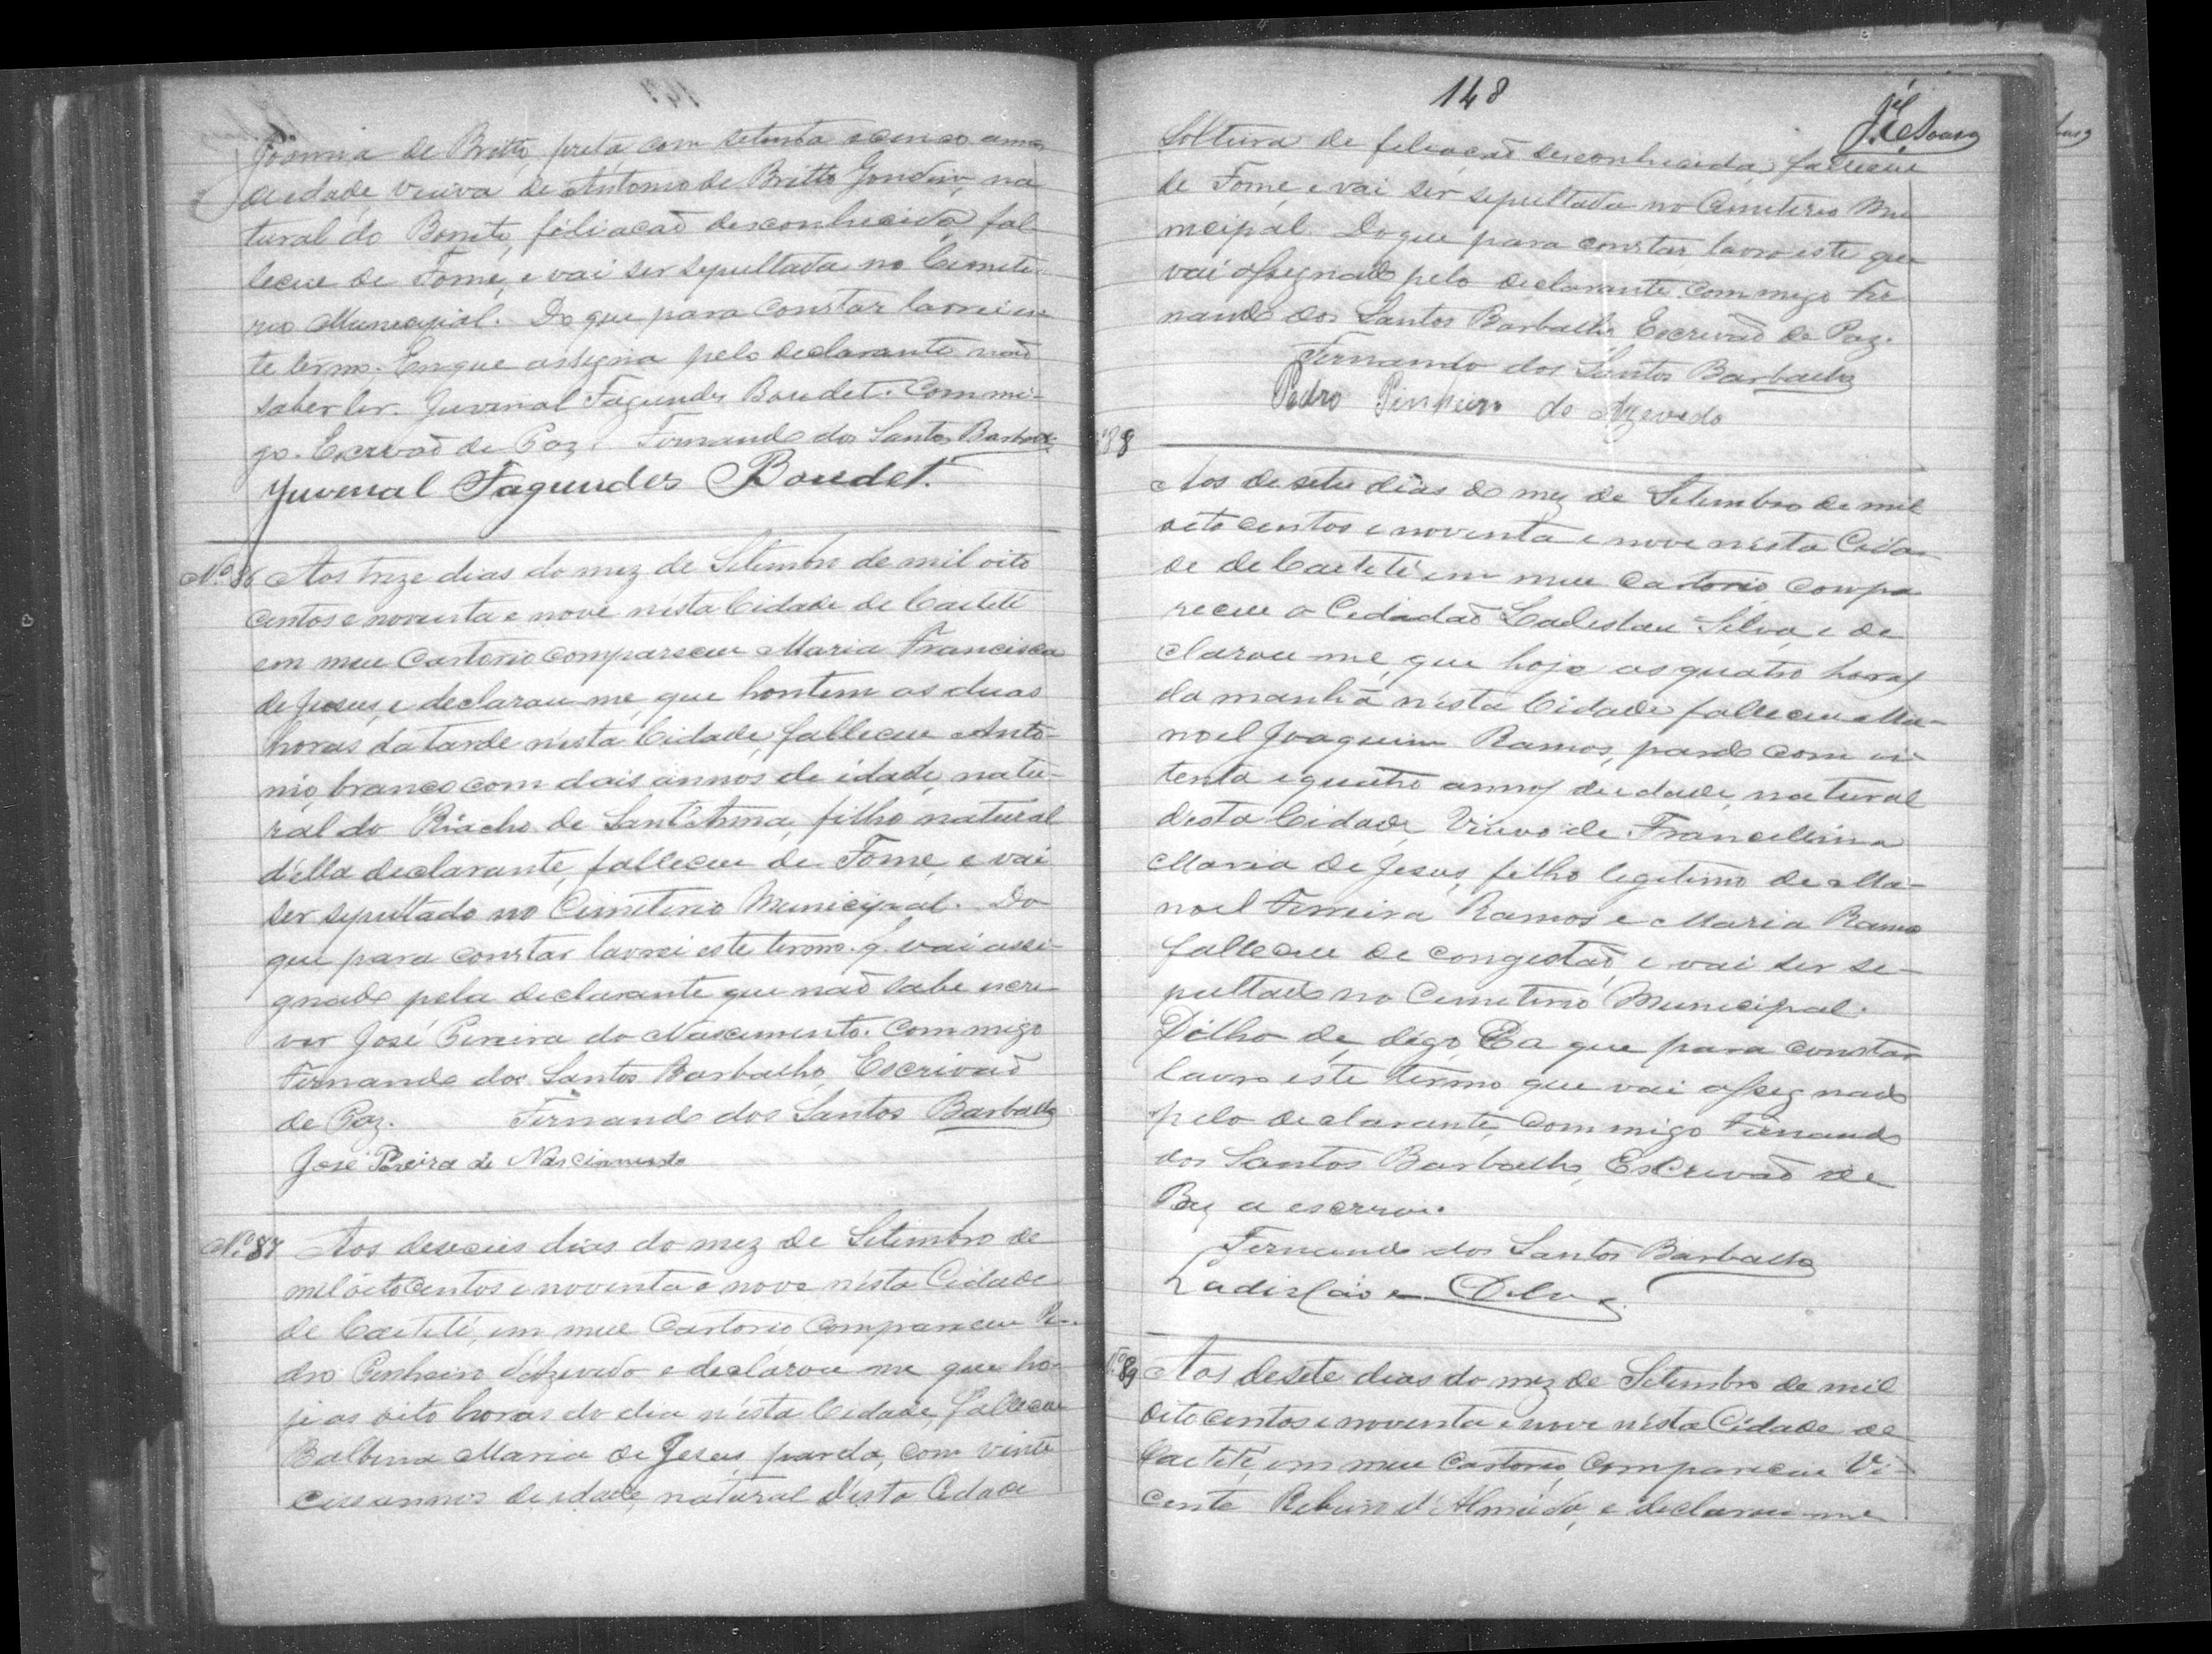 de Britto, preta com setenta e cinco annos
de edade, viuva de Antonio de Britto Gondim, na
tural do Bonito, filiação desconhecida, fal
leceu de Fome, e vai ser sepultada no Cemite
rio Municipal. Do que para constar lavrei es
te termo. Em que assigna pelo declarante não
saber ler. Juvenal Fagundes Boudet. Commi-
go. Escrivão de Paz. Fernando dos Santos Barbalho
Juvenal Fagundes Boudet.
Nº 86 Aos treze dias do mez de Setembro de mil oito
centos e noventa e nove nésta Cidade de Caeteté
em meu Cartorio compareceu Maria Francisca
de Jesus, e declarou-me, que hontem as duas
horas da tarde nésta Cidade, falleceu Anto-
nio, branco com dois annos de idade, natu-
ral do Riacho de Sant'Anna, filho natural
d'ella declarante, falleceu de Fome, e vai
ser sepultado no Cimiterio Municipal. Do
que para constar lavrei este termo. q. vai assi-
gnado pela declarante que não sabe escre-
ver José Pereira do Nascimento. Commigo
Fernando dos Santos Barbalho, Escrivão
de Paz. Fernando dos Santos Barbalho
José Pereira do Nascimento
Nº 87 Aos deseceis dias do mez de Setembro de
mil oitocentos e noventa e nove nésta Cidade
de Caeteté, em meu Cartorio Compareceu Pe-
dro Pinheiro d'Azevedo e declarou me que ho-
je as oito horas do dia nésta Cidade, falleceu
Balbina Maria de Jesus, parda, com vinte
annos de edade, natural desta Cidade
148
Solteira de filiação desconhecida, falleceu
de Fome, e vai ser sepultada no Cimiterio Mu
nicipal. Do que para constar lavro este que
vai assignado pelo declarante commigo Fer
nando dos Santos Barbalho Escrivão de Paz.
Fernando dos Santos Barbalho
Pedro Pinheiro de Azevedo
88
Aos desete dias do mez de Setembro de mil
oito centos e noventa e nove nésta Cida
de de Caeteté em meu Cartorio compa
receu o Cidadão Ladislau Silva, e de
clarou me, que hoje as quatro horas
da manhã nésta Cidade falleceu Ma-
noel Joaquim Ramos, pardo com oi-
tenta e quatro annos de edade, natural
désta Cidade, Viuvo de Francellina
Maria de Jesus, filho legitimo de Ma-
noel Ferreira Ramos e Maria Ramos
falleceu de congestão, e vai ser se-
pultado no Cemiterio Municipal.
de, digo, que para constar
lavro este termo que vai assignado
pelo declarante, commigo Fernando
dos Santos Barbalho, Escrivão de
Paz a escrevi.
Fernando dos Santos Barbalho
Ladisláo Silva
Nº 89 Aos desete dias do mez de Setembro de mil
oitocentos e noventa e nove nésta Cidade de
Caeteté, em meu Cartorio, Compareceu Vi-
cente Ribeiro d'Almeida, e declarou-me